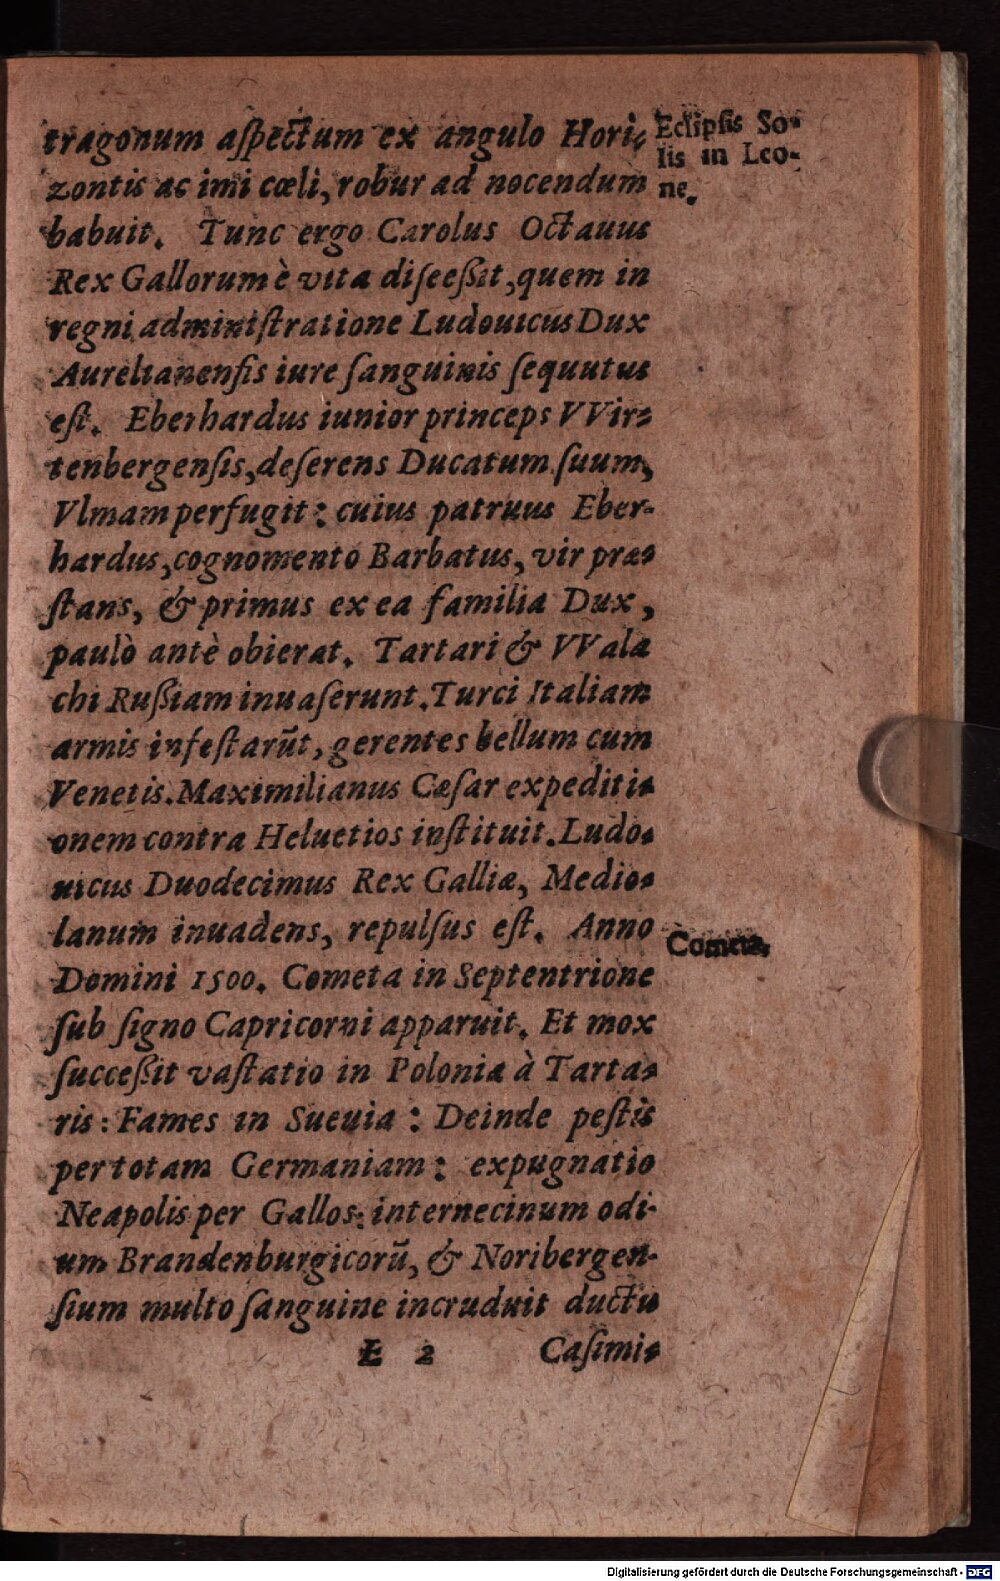 tragonum aſpectum ex angulo Hori-
zontis ac imi cœli, robur ad nocendum
habuit. Tunc ergo Carolus Octauus
Rex Gallorum è vita diſceßit, quem in
regni adminiſtratione Ludouicus Dux
Aurelianenſis iure ſanguinis ſequutus
eſt. Eberhardus iunior princeps VVir-
tenbergenſis, deſerens Ducatum ſuum,
Vlmam perfugit: cuius patruus Eber-
hardus, cognomento Barbatus, vir præ-
ſtans, & primus ex ea familia Dux,
paulò antè obierat. Tartari & VVala
chi Rußiam inuaſerunt. Turci Italiam
armis infeſtarūt, gerentes bellum cum
Venetis. Maximilianus Cæſar expediti-
onem contra Heluetios inſtituit. Ludo-
uicus Duodecimus Rex Galliæ, Medio-
lanum inuadens, repulſus eſt. Anno
Domini 1500. Cometa in Septentrione
ſub ſigno Capricorni apparuit. Et mox
ſucceßit vaſtatio in Polonia à Tarta-
ris: Fames in Sueuia: Deinde peſtis
per totam Germaniam: expugnatio
Neapolis per Gallos: internecinum odi-
um Brandenburgicorū, & Noribergen-
ſium multo ſanguine incruduit ductu
E 2 Caſimi-
Eclipſis So-
lis in Leo-
ne.
Cometa.
Digitalisierung gefördert durch die Deutsche Forschungsgemeinschaft - DFG